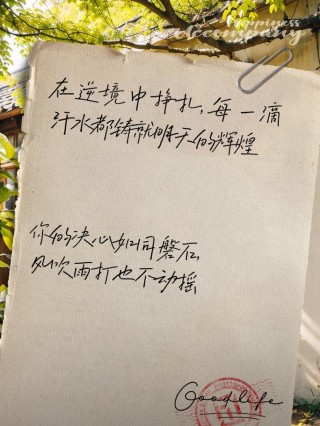 Happiness
在逆境中挣扎,每一滴
汗水都铸就明天的辉煌
你的决心如同磐石
风吹雨打也不动摇
Goodlife